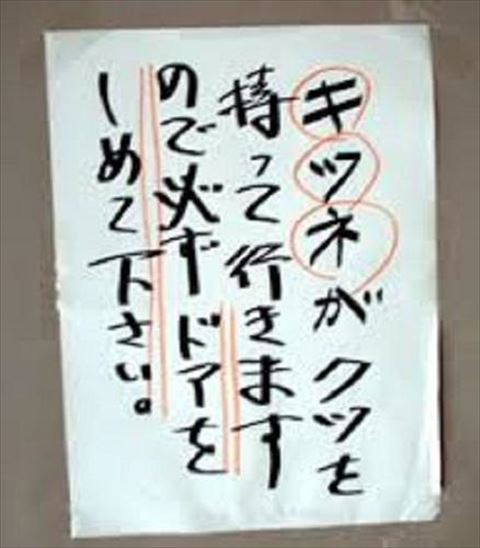 キツネがクツを
持って行きます
ので必ずドアを
しめて下さい。